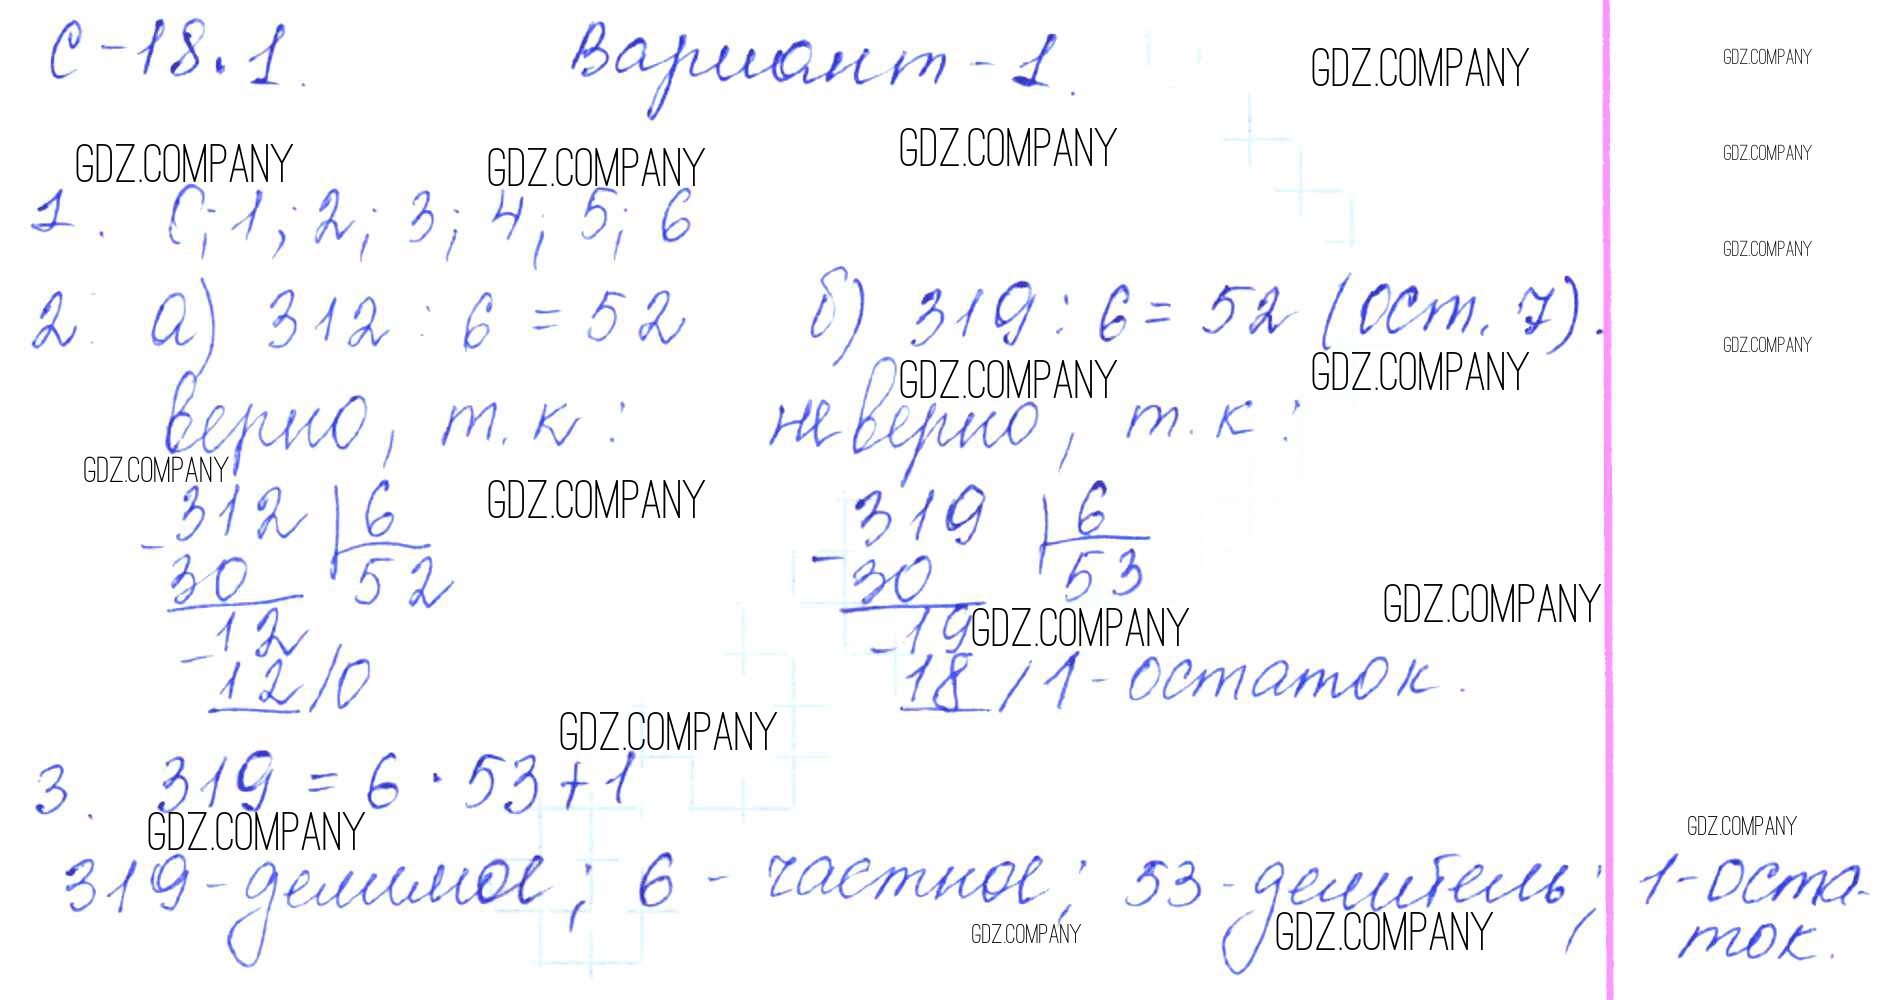 С-18.1. Вариант-1. GDZ.COMPANY GDZ.COMPANY
GDZ.COMPANY GDZ.COMPANY GDZ.COMPANY GDZ.COMPANY
1. 0; 1; 2; 3; 4; 5; 6
GDZ.COMPANY
2. а) 312 : 6 = 52 б) 319 : 6 = 52 (ост. 7).
GDZ.COMPANY GDZ.COMPANY GDZ.COMPANY
верно, т.к: неверно, т.к:
GDZ.COMPANY GDZ.COMPANY
312 | 6 319 | 6
- 30 52 - 30 53
GDZ.COMPANY
12 19 GDZ.COMPANY
- 12 / 0 - 18 / 1 - остаток.
GDZ.COMPANY
3. 319 = 6 · 53 + 1
GDZ.COMPANY GDZ.COMPANY
319 - делимое; 6 - частное; 53 - делитель; 1 - оста-
ток.
GDZ.COMPANY GDZ.COMPANY